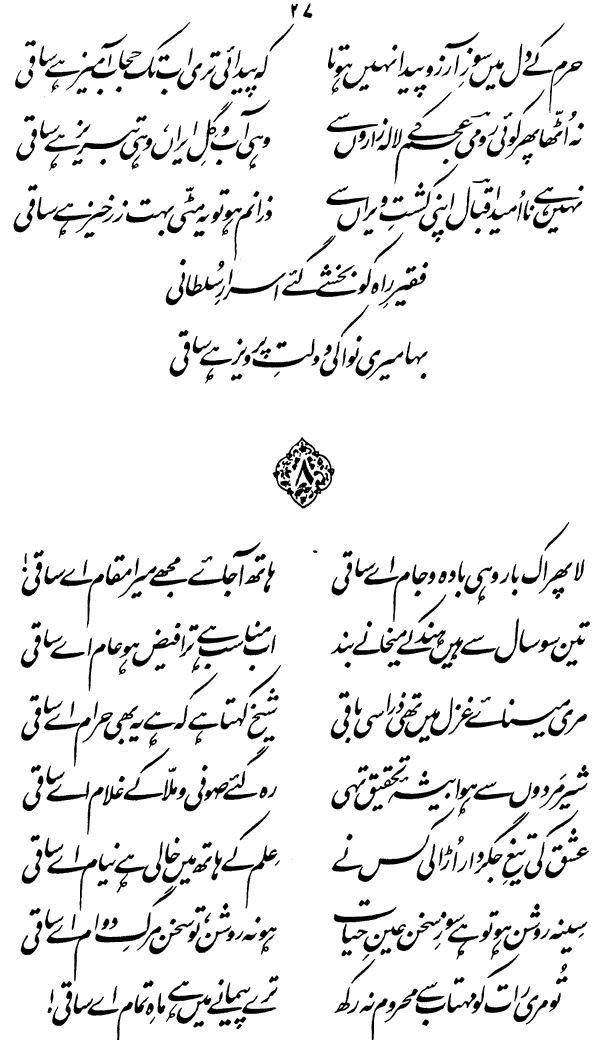 ۲۷
حرم کے دل میں سوزِ آرزو پیدا نہیں ہوتا کہ پیدائی تری اب تک حجاب آمیز ہے ساقی
نہ اُٹھا پھر کوئی رومی عجم کے لالہ زاروں سے وہی آب و گِلِ ایراں، وہی تبریز ہے ساقی
نہیں ہے نا اُمید اقبال اپنی کشتِ ویراں سے ذرا نم ہو تو یہ مٹّی بہت زرخیز ہے ساقی
فقیرِ راہ کو بخشے گئے اسرارِ سُلطانی
بہا میری نوا کی دولتِ پرویز ہے ساقی
۸
لا پھر اک بار وہی بادہ و جام اے ساقی ہاتھ آ جائے مجھے میرا مقام اے ساقی!
تین سو سال سے ہیں ہند کے میخانے بند اب مناسب ہے ترا فیض ہو عام اے ساقی
مری مینائے غزل میں تھی ذرا سی باقی شیخ کہتا ہے کہ ہے یہ بھی حرام اے ساقی
شیر مَردوں سے ہوا بیشۂ تحقیق تہی رہ گئے صوفی و مُلّا کے غلام اے ساقی
عشق کی تیغِ جگردار اُڑا لی کس نے عِلم کے ہاتھ میں خالی ہے نیام اے ساقی
سینہ روشن ہو تو ہے سوزِ سخن عینِ حیات ہو نہ روشن، تو سخن مرگِ دوام اے ساقی
تُو مری رات کو مہتاب سے محروم نہ رکھ ترے پیمانے میں ہے ماہِ تمام اے ساقی!